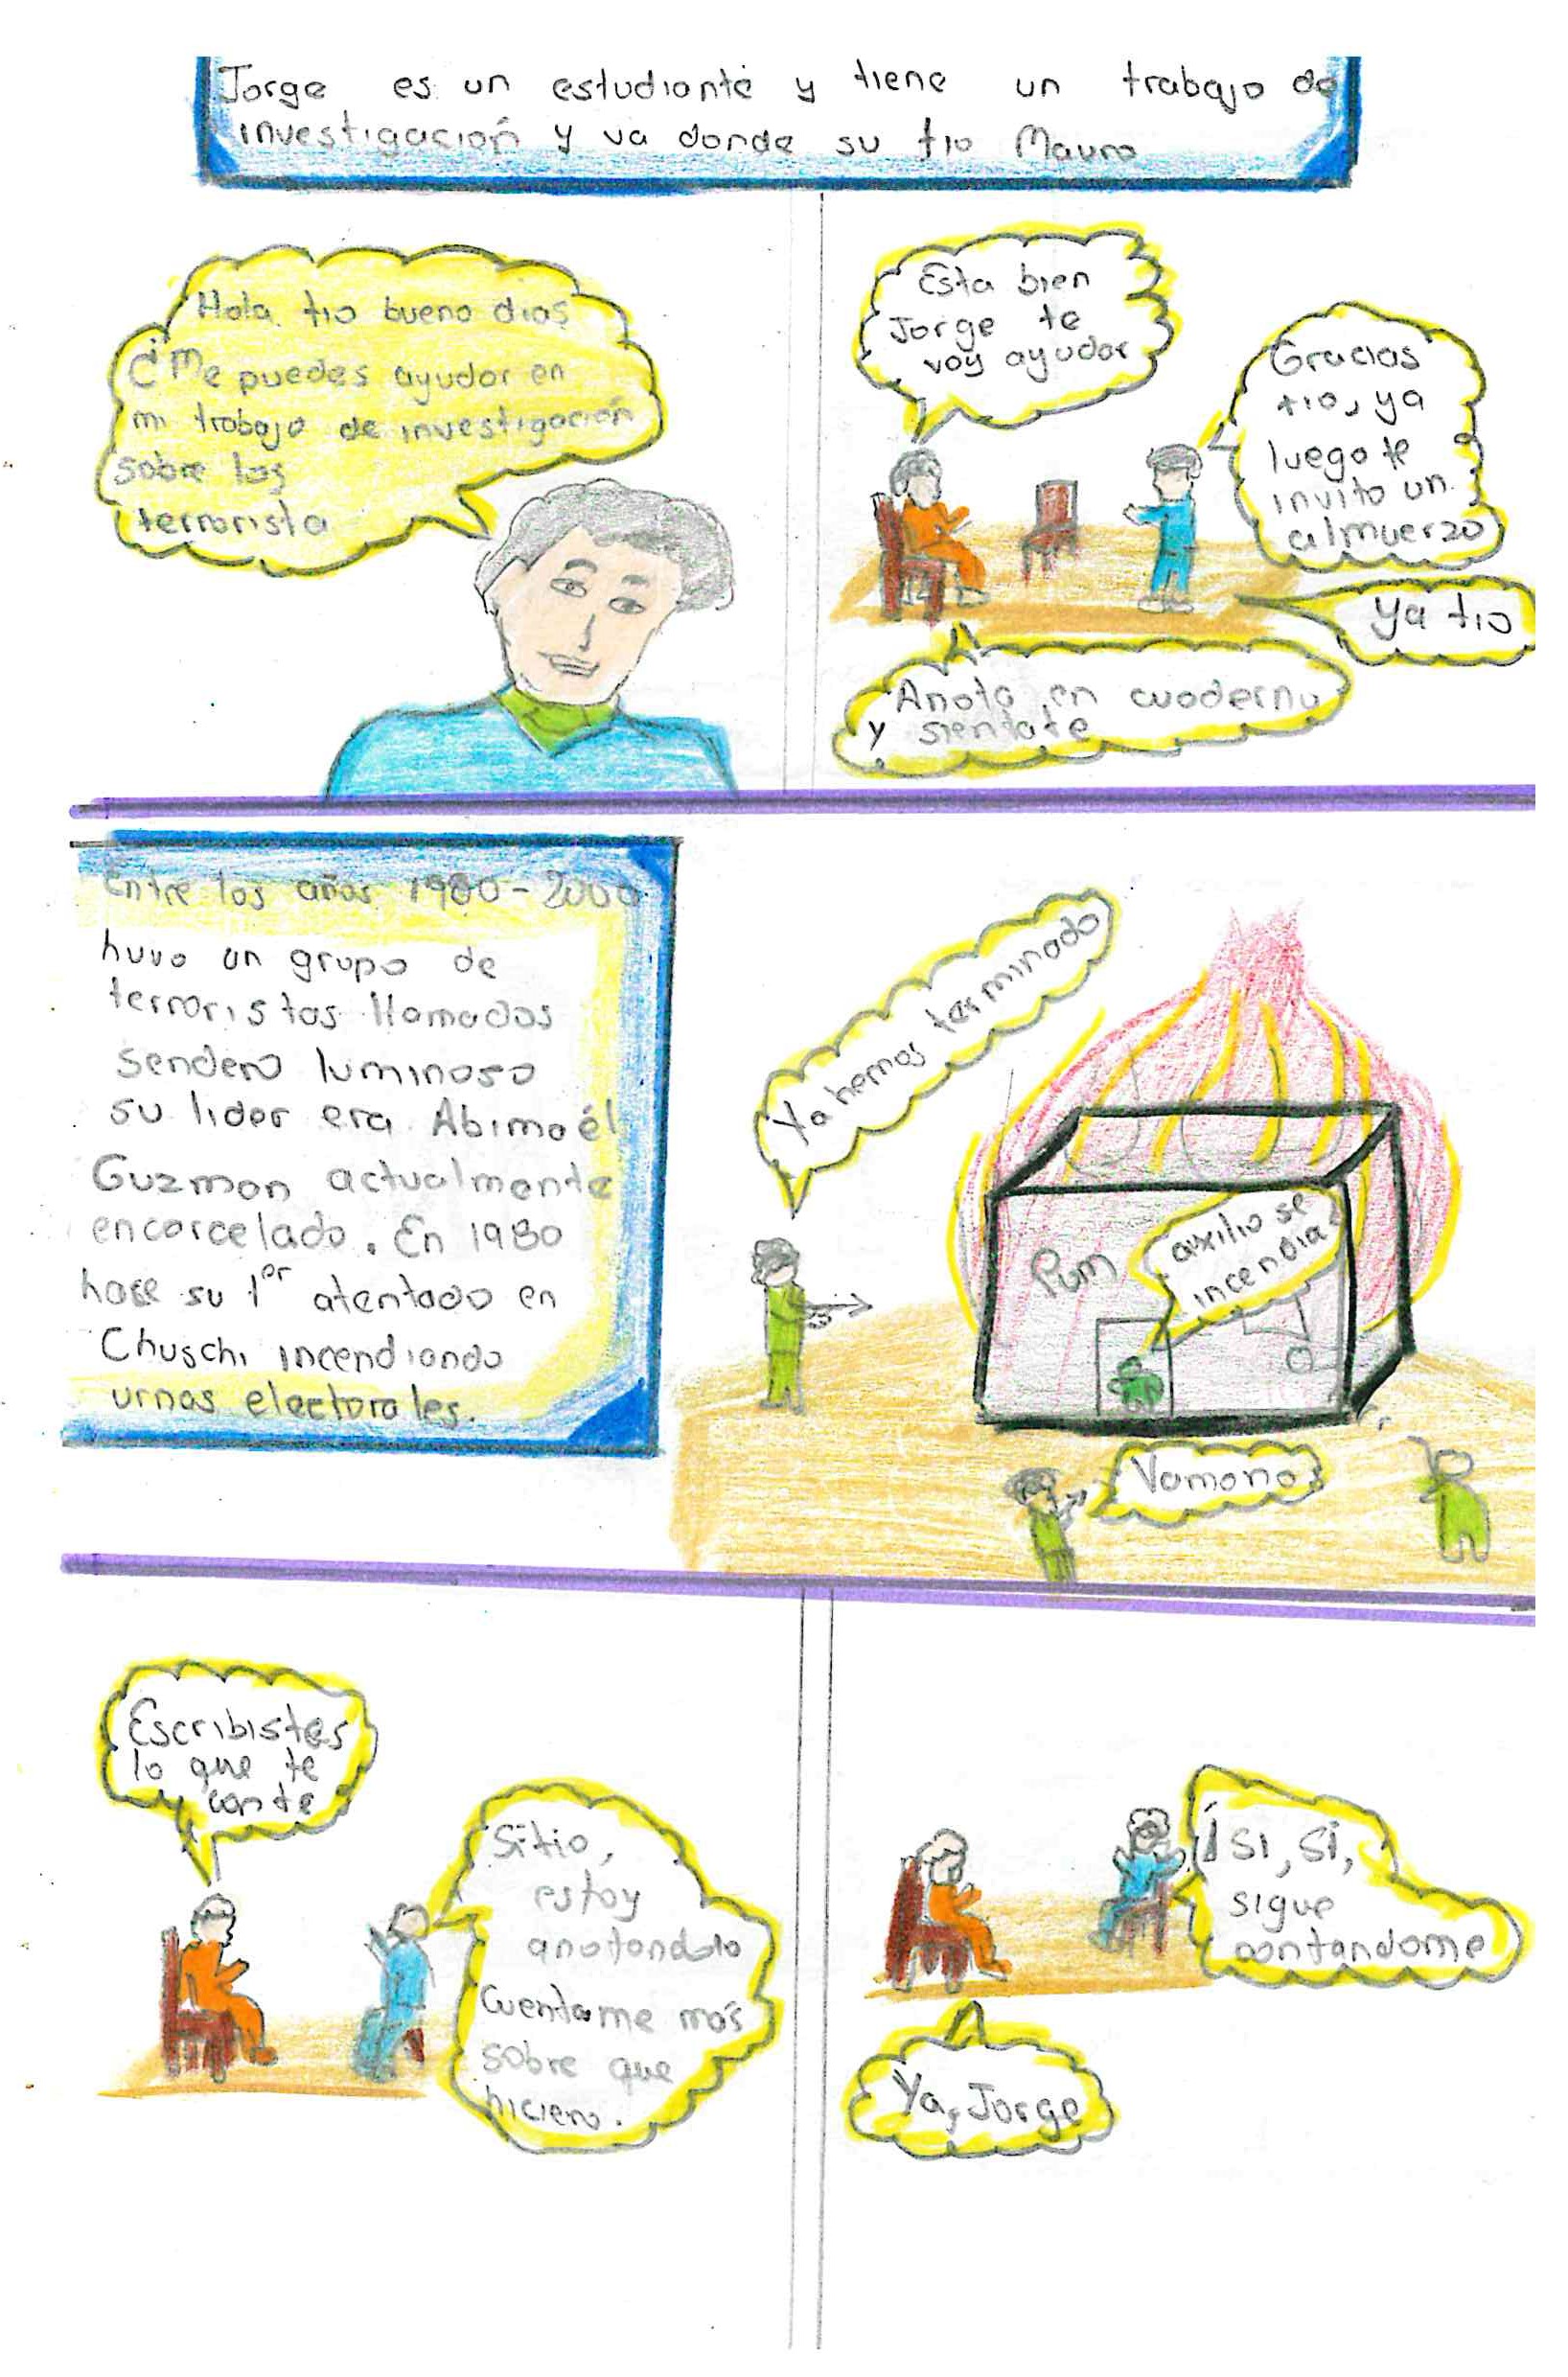 Jorge es un estudiante y tiene un trabajo de
investigación y va donde su tio Mauro
Hola tio bueno dias
¿Me puedes ayudar en
mi trabajo de investigación
sobre los
terrorista
Esta bien
Jorge te
voy ayudar
Gracias
tio, ya
luego te
invito un
almuerzo
Anota en cuaderno
y sientate
Ya tio
Entre los años 1980-2000
huvo un grupo de
terroristas llamados
sendero luminoso
su lider era Abimaél
Guzman actualmente
encarcelado. En 1980
hase su 1er atentado en
Chuschi incendiando
urnas electorales.
Ya hemos terminado
Pum
auxilio se
incendia
Vamonos
Escribistes
lo que te
conte
Si tio,
estoy
anotandolo
Cuentame más
sobre que
hiciero.
¡Si, si,
sigue
contandome
Ya, Jorge